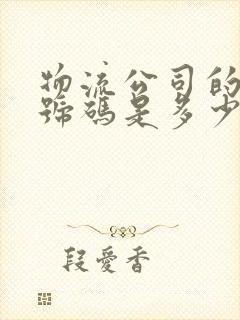 物流公司的
號碼是多少
段愛香